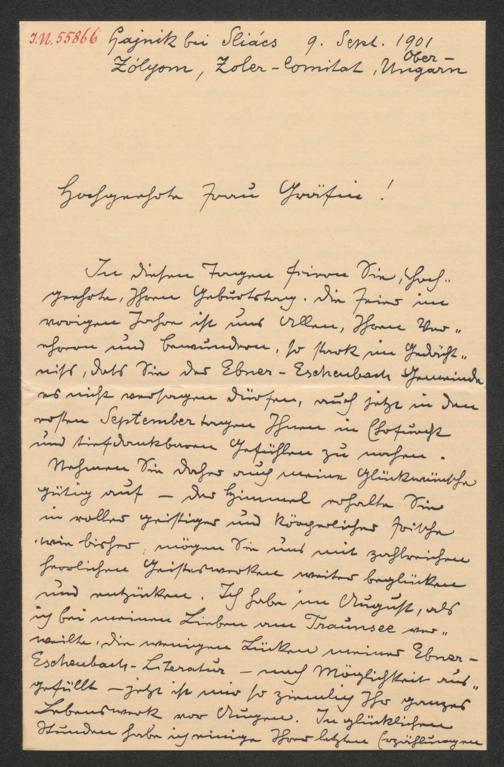 I.N. 55866 Hajnik bei Sliács 9. Sept. 1901
Zólyom, Zoler-Comitat, Ober-
Ungarn
Hochgeehrte Frau Gräfin!
In diesen Tagen feiern Sie, Hoch-
geehrte, Ihren Geburtstag. Die Feier im
vorigen Jahre ist uns Allen, Ihren Ver-
ehrern und Bewunderern, so stark im Gedächt-
niss, dass Sie der Ebner-Eschenbach Gemeinde
es nicht versagen dürfen, auch jetzt in den
ersten Septembertagen Ihnen in Ehrfurcht
und tiefdankbaren Gefühlen zu nahen.
Nehmen Sie daher auch meine Glückwünsche
gütig auf – der Himmel erhalte Sie
in voller geistiger und körperlicher Frische
wie bisher, mögen Sie uns mit zahlreichen
herrlichen Geisteswerken weiter beglücken
und entzücken. Ich habe im August, als
ich bei meinen Lieben am Traunsee ver-
weilte, die wenigen Lücken meiner Ebner-
Eschenbach-Literatur – nach Möglichkeit aus-
gefüllt – jetzt ist mir so ziemlich Ihr ganzes
Lebenswerk vor Augen. In glücklichen
Stunden habe ich einige Ihrer letzten Erzählungen